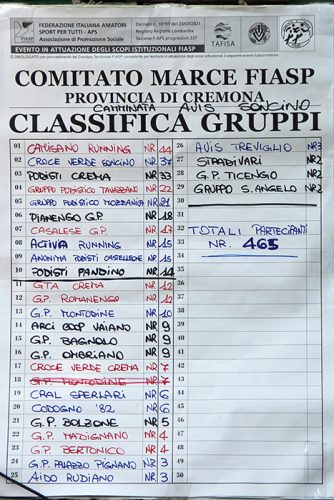 FEDERAZIONE ITALIANA AMATORI
SPORT PER TUTTI - APS
Associazione di Promozione Sociale
FIASP
TAFISA
EVENTO IN ATTUAZIONE DEGLI SCOPI ISTITUZIONALI FIASP
COMITATO MARCE FIASP
PROVINCIA DI CREMONA
CAMMINATA AVIS SONCINO
CLASSIFICA GRUPPI
01 CAMISANO RUNNING NR 44
02 CROCE VERDE SONCINO NR 37
03 PODISTI CREMA NR 33
04 GRUPPO PODISTICO TAVAZZANO NR 22
05 GRUPPO PODISTICO MOZZANICA NR 21
06 PIANENGO G.P. NR 18
07 CASALESE G.P. NR 17
08 ACTIVA RUNNING NR 15
09 ANONIMA PODISTI CASTELLEONE NR 15
10 PODISTI PANDINO NR 14
11 GTA CREMA NR 12
12 G.P. ROMANENGO NR 12
13 G.P. MONTODINE NR 10
14 ARCI COOP VAIANO NR 9
15 G.P. BAGNOLO NR 9
16 G.P. OMBRIANO NR 9
17 CROCE VERDE CREMA NR 7
18 G.P. MONTODINE NR 7
19 CRAL SPERLARI NR 6
20 CODOGNO '82 NR 6
21 G.P. BOLZONE NR 5
22 G.P. MADIGNANO NR 4
23 G.P. BERTONICO NR 4
24 G.P. PALAZZO PIGNANO NR 3
25 AIDO RUDIANO NR 3
26 AVIS TREVIGLIO NR 3
27 STRADIVARI NR 2
28 G.P. TICENGO NR 2
29 GRUPPO S. ANGELO NR 2
30
31
32 TOTALI PARTECIPANTI
33 NR. 465
34
35
36
37
38
39
40
41
42
43
44
45
46
47
48
49
50